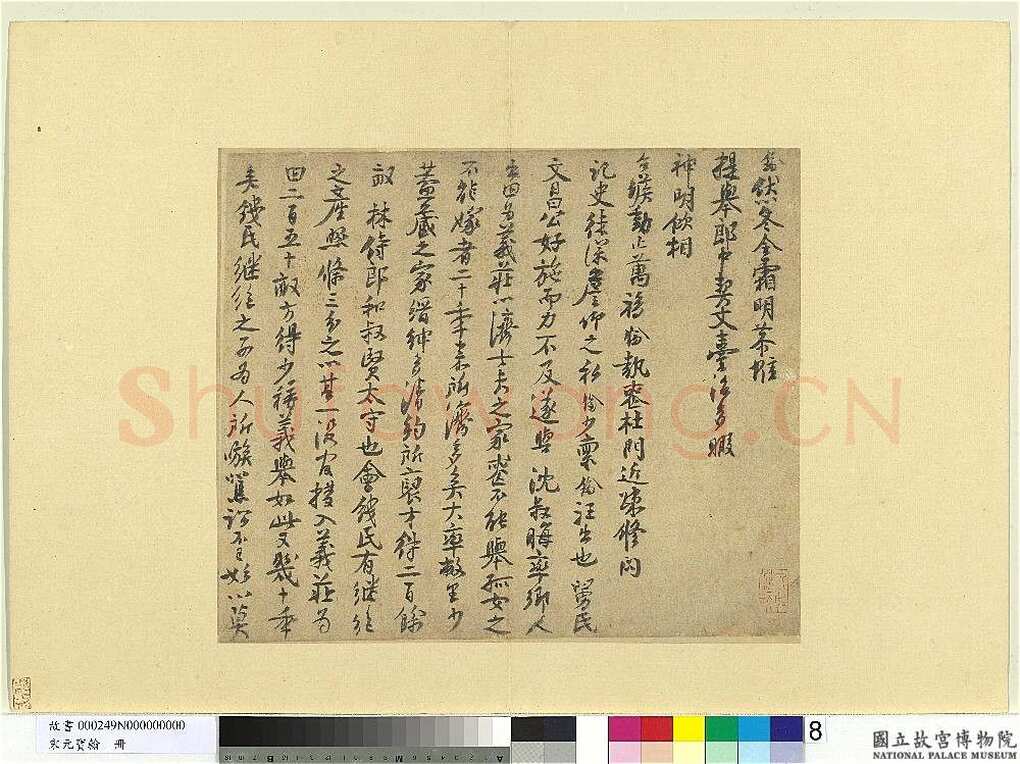 然冬令霜明恭惟
提舉郎中契丈臺治多暇
神明飲相
台候動止萬福 執喪杜門近疎修問
記史徒深詹仰之私 少稟 往出也 民
文昌公好施而力不及遂與沈叔晦率鄉人
田為義莊以濟士夫之家喪不能舉孤女之
不能嫁者二十年 所濟多矣大率敝里少
蓋藏之家縉紳多清約所裒才得二百餘
畝 林侍郎和叔賢太守也會錢民有繼絕
之產照條三分之以其一沒官撥入義莊為
田二百五十畝方得少稱義舉如此又幾十年
矣錢民繼絕之子為人所騃 訟不已始以
Shufawang.CN
故書 000249N000000000
宋元寶翰 冊
8
國立故宮博物院
NATIONAL PALACE MUSEUM